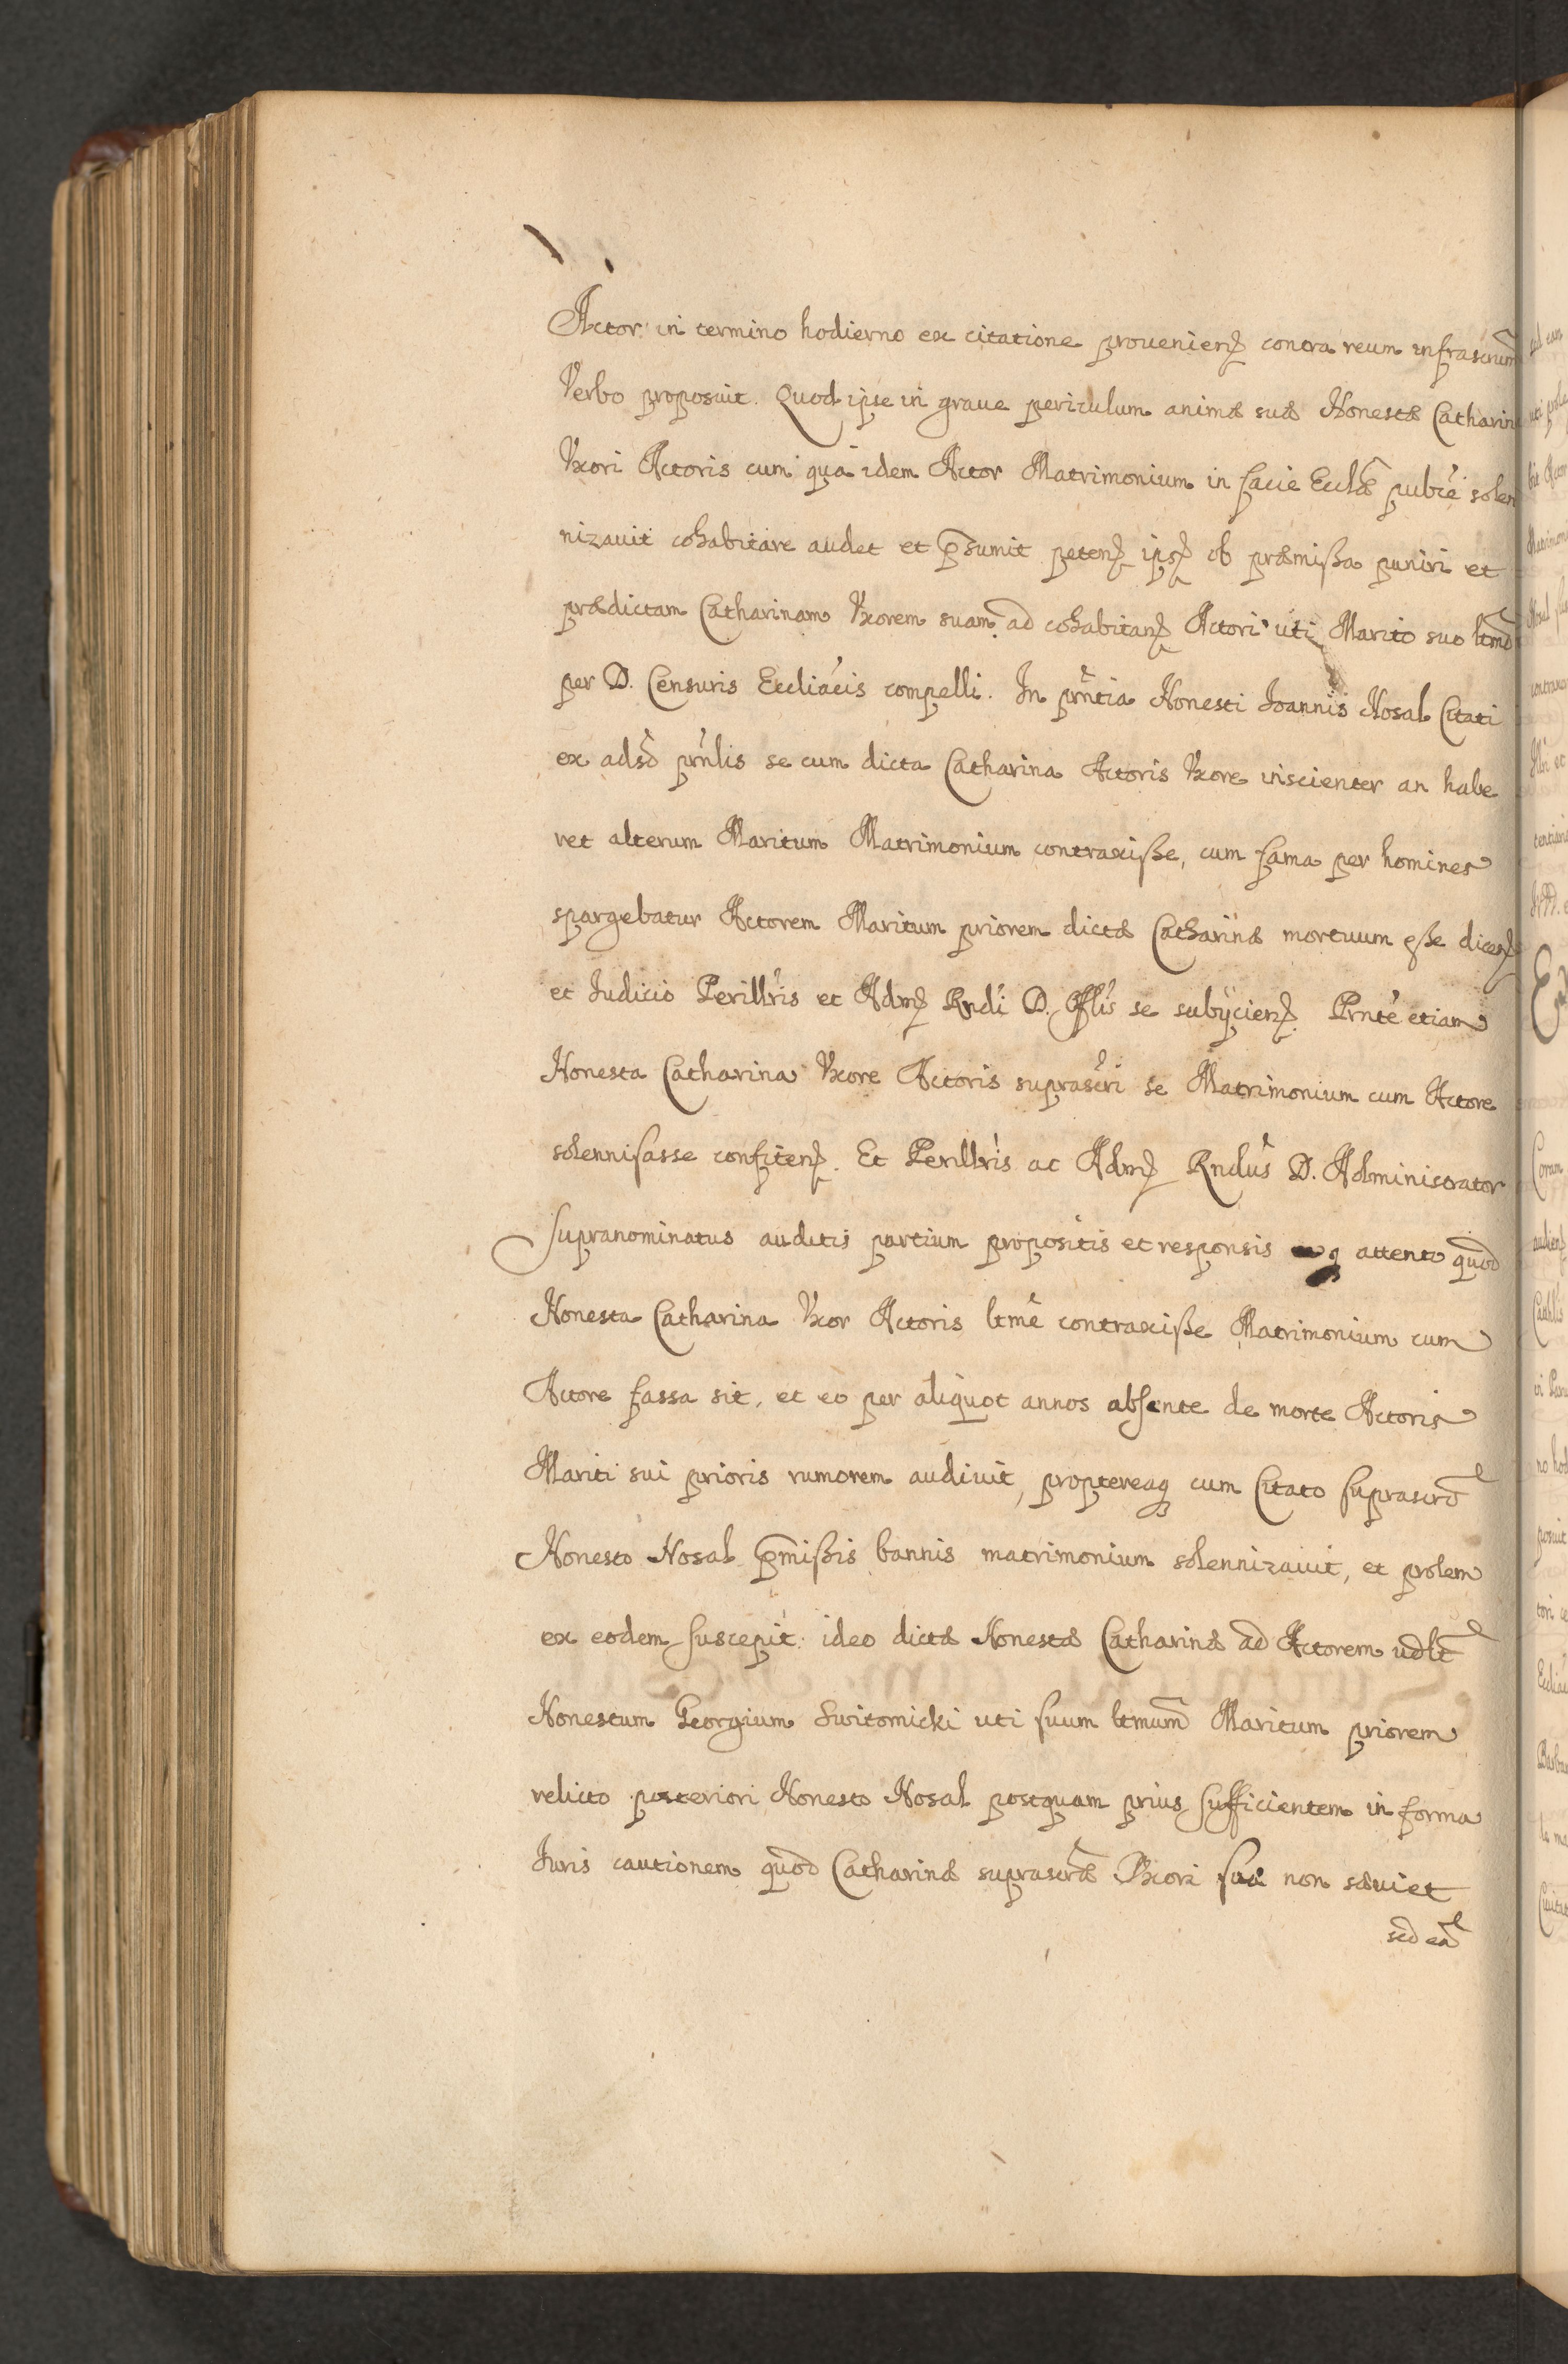 Actor in termino hodierno ex citatione provenien͂ contra reum infrascrıum
Verbo proposuit. Quod ipse in graue periculum animæ suæ Honestæ Catharin
Vxori Actoris cum qua idem Actor Matrimonium in facie Eccłæ publcé solen
nizauit cohabitare audet et p̄sumit peten͂ ips͂ ob præmißa puniri et
prædictam Catharinam Vxorem suam ad cohabitan͂ Actori uti Marito suo ltmo
per D. Censuris Eccliacis compelli. In prńtia Honesti Joannis Nosal Citati
ex adso prńlis se cum dicta Catharina Actoris Vxore inscienter an habe
ret alterum Maritum Matrimonium contraxiße, cum fama per homines
spargebatur Actorem Maritum priorem dictæ Catharinæ mortuum eße dicen͂
et Judicio Perillris et Adm͂ Rndi D. Offlis se subijcien͂. Prnte etiam
Honesta Catharina Vxore Actoris suprascri se Matrimonium cum Actore
solennisasse confiten͂. Et Perillris ac Adm͂ Rndus D. Administrator
supranominatus auditis partium propositis et responsis attento quod
Honesta Catharina Vxor Actoris ltmé contraxiße Matrimonium cum
Actore fassa sit, et eo per aliquot annos absente de morte Actoris
Mariti sui prioris rumorem audiuit, proptereaq cum Citato suprascro
Honesto Nosal p̄mißis bannis matrimonium solennizauit, et prolem
ex eodem suscepit: ideo dictæ Honestæ Catharinæ ad Actorem udlt
Honestum Georgium Switomicki uti suum ltmum Maritum priorem
relicto posteriori Honesto Nosal postquam prius sufficientem in forma
Juris cautionem quod Catharinæ suprascræ Vxori suæ non sæuiet
sed eã